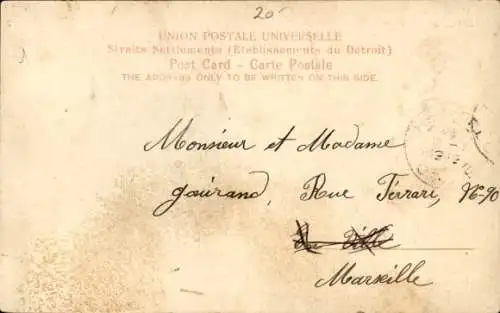 20
UNION POSTALE UNIVERSELLE
Straits Settlements (Etablissements du Detroit)
Post Card – Carte Postale
THE ADDRESS ONLY TO BE WRITTEN ON THIS SIDE.
Monsieur et Madame
Gourand, Rue Ferrari, No 90
En Ville
Marseille